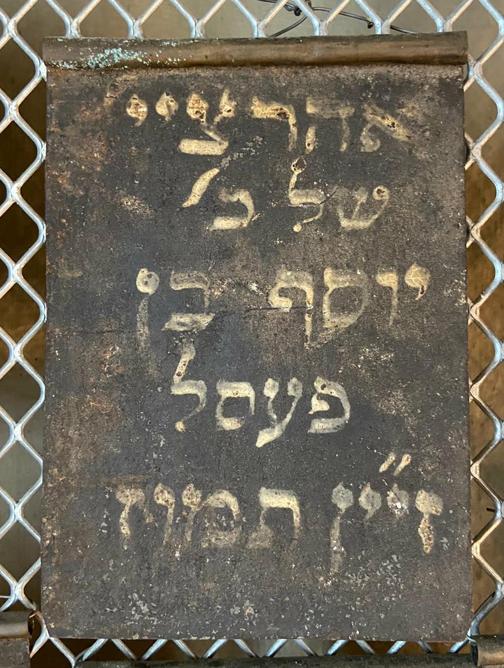 אהרציי
של כ׳
יוסף בן
פעסל
זי״ין תמוז